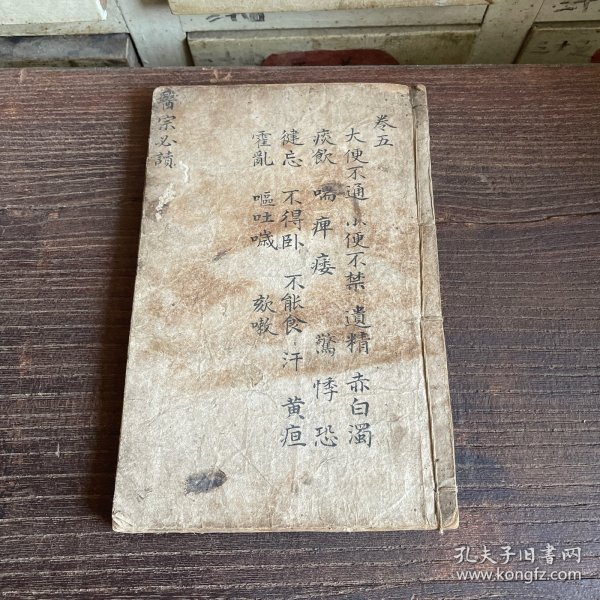 卷五
大便不通 小便不禁 遺精 赤白濁
痰飲 喘 痺 痿 驚 悸 恐
健忘 不得卧 不能食 汗 黃疸
霍亂 嘔吐噦 欬嗽
醫宗必讀
孔夫子旧书网
www.kongfz.com